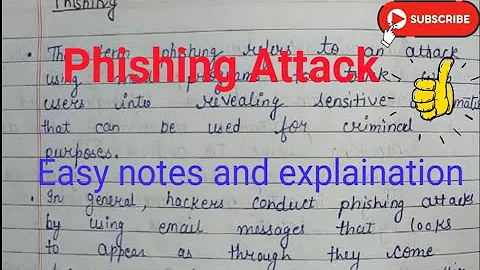 Phishing
SUBSCRIBE
• The term phishing refers to an attack
Phishing Attack
using
users into revealing sensitive
that can be used for crimincel
purposes.
Easy notes and explaination
• In general, hackers conduct phishing attacks
by using email messages that looks
to appear as through they come